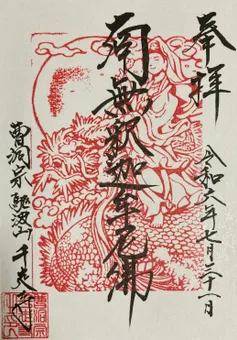 奉拝
令和六年七月二十一日
南無釈迦牟尼佛
曹洞宗